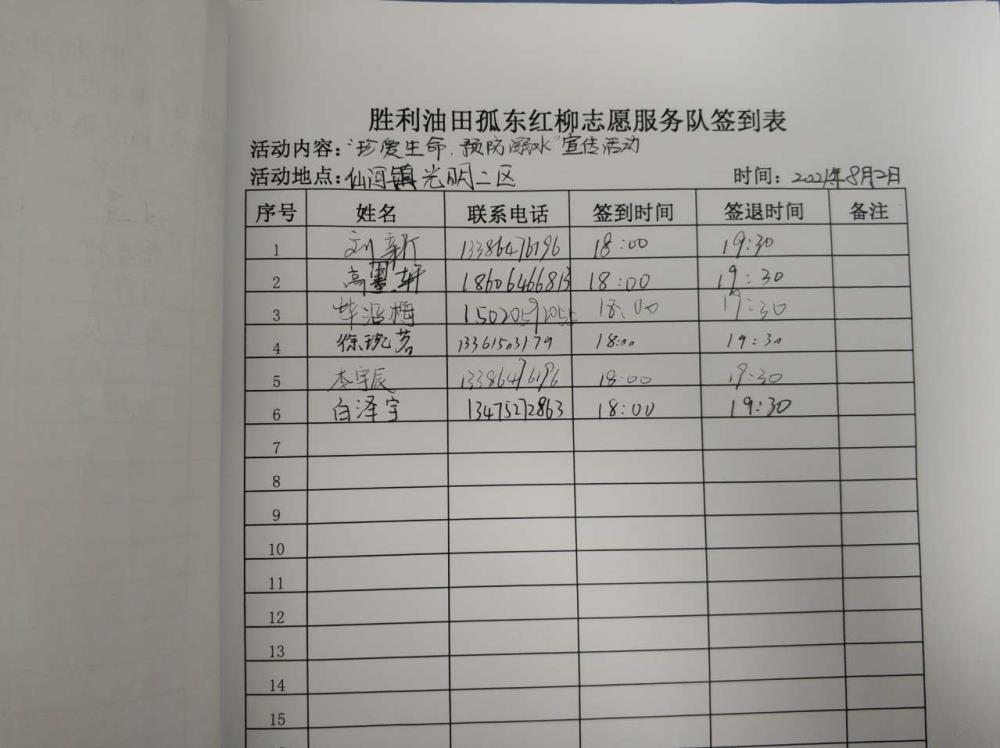 胜利油田孤东红柳志愿服务队签到表
活动内容："珍爱生命，预防溺水"宣传活动
活动地点：仙河镇光明二区 时间：2021年8月2日
序号 姓名 联系电话 签到时间 签退时间 备注
1 刘新 13386476196 18:00 19:30
2 高墨轩 18606466813 18:00 19:30
3 18:00 19:30
4 徐琬茗 13361503179 18:00 19:30
5 李宇辰 13386476196 18:00 19:30
6 白泽宇 13475272863 18:00 19:30
7
8
9
10
11
12
13
14
15